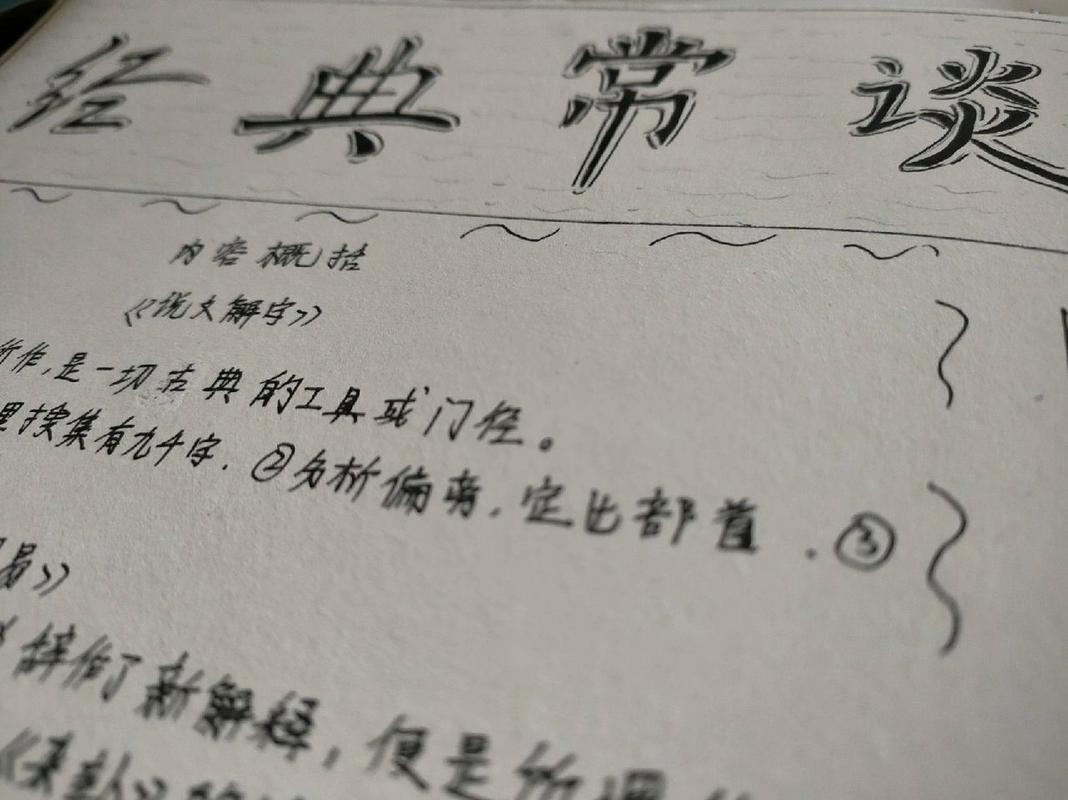 经典常谈
内容概括
《说文解字》
所作,是一切古典的工具或门径。
里搜集有九千字.②分析偏旁.定出部首.③
易》
辞作了新解释,便是所谓